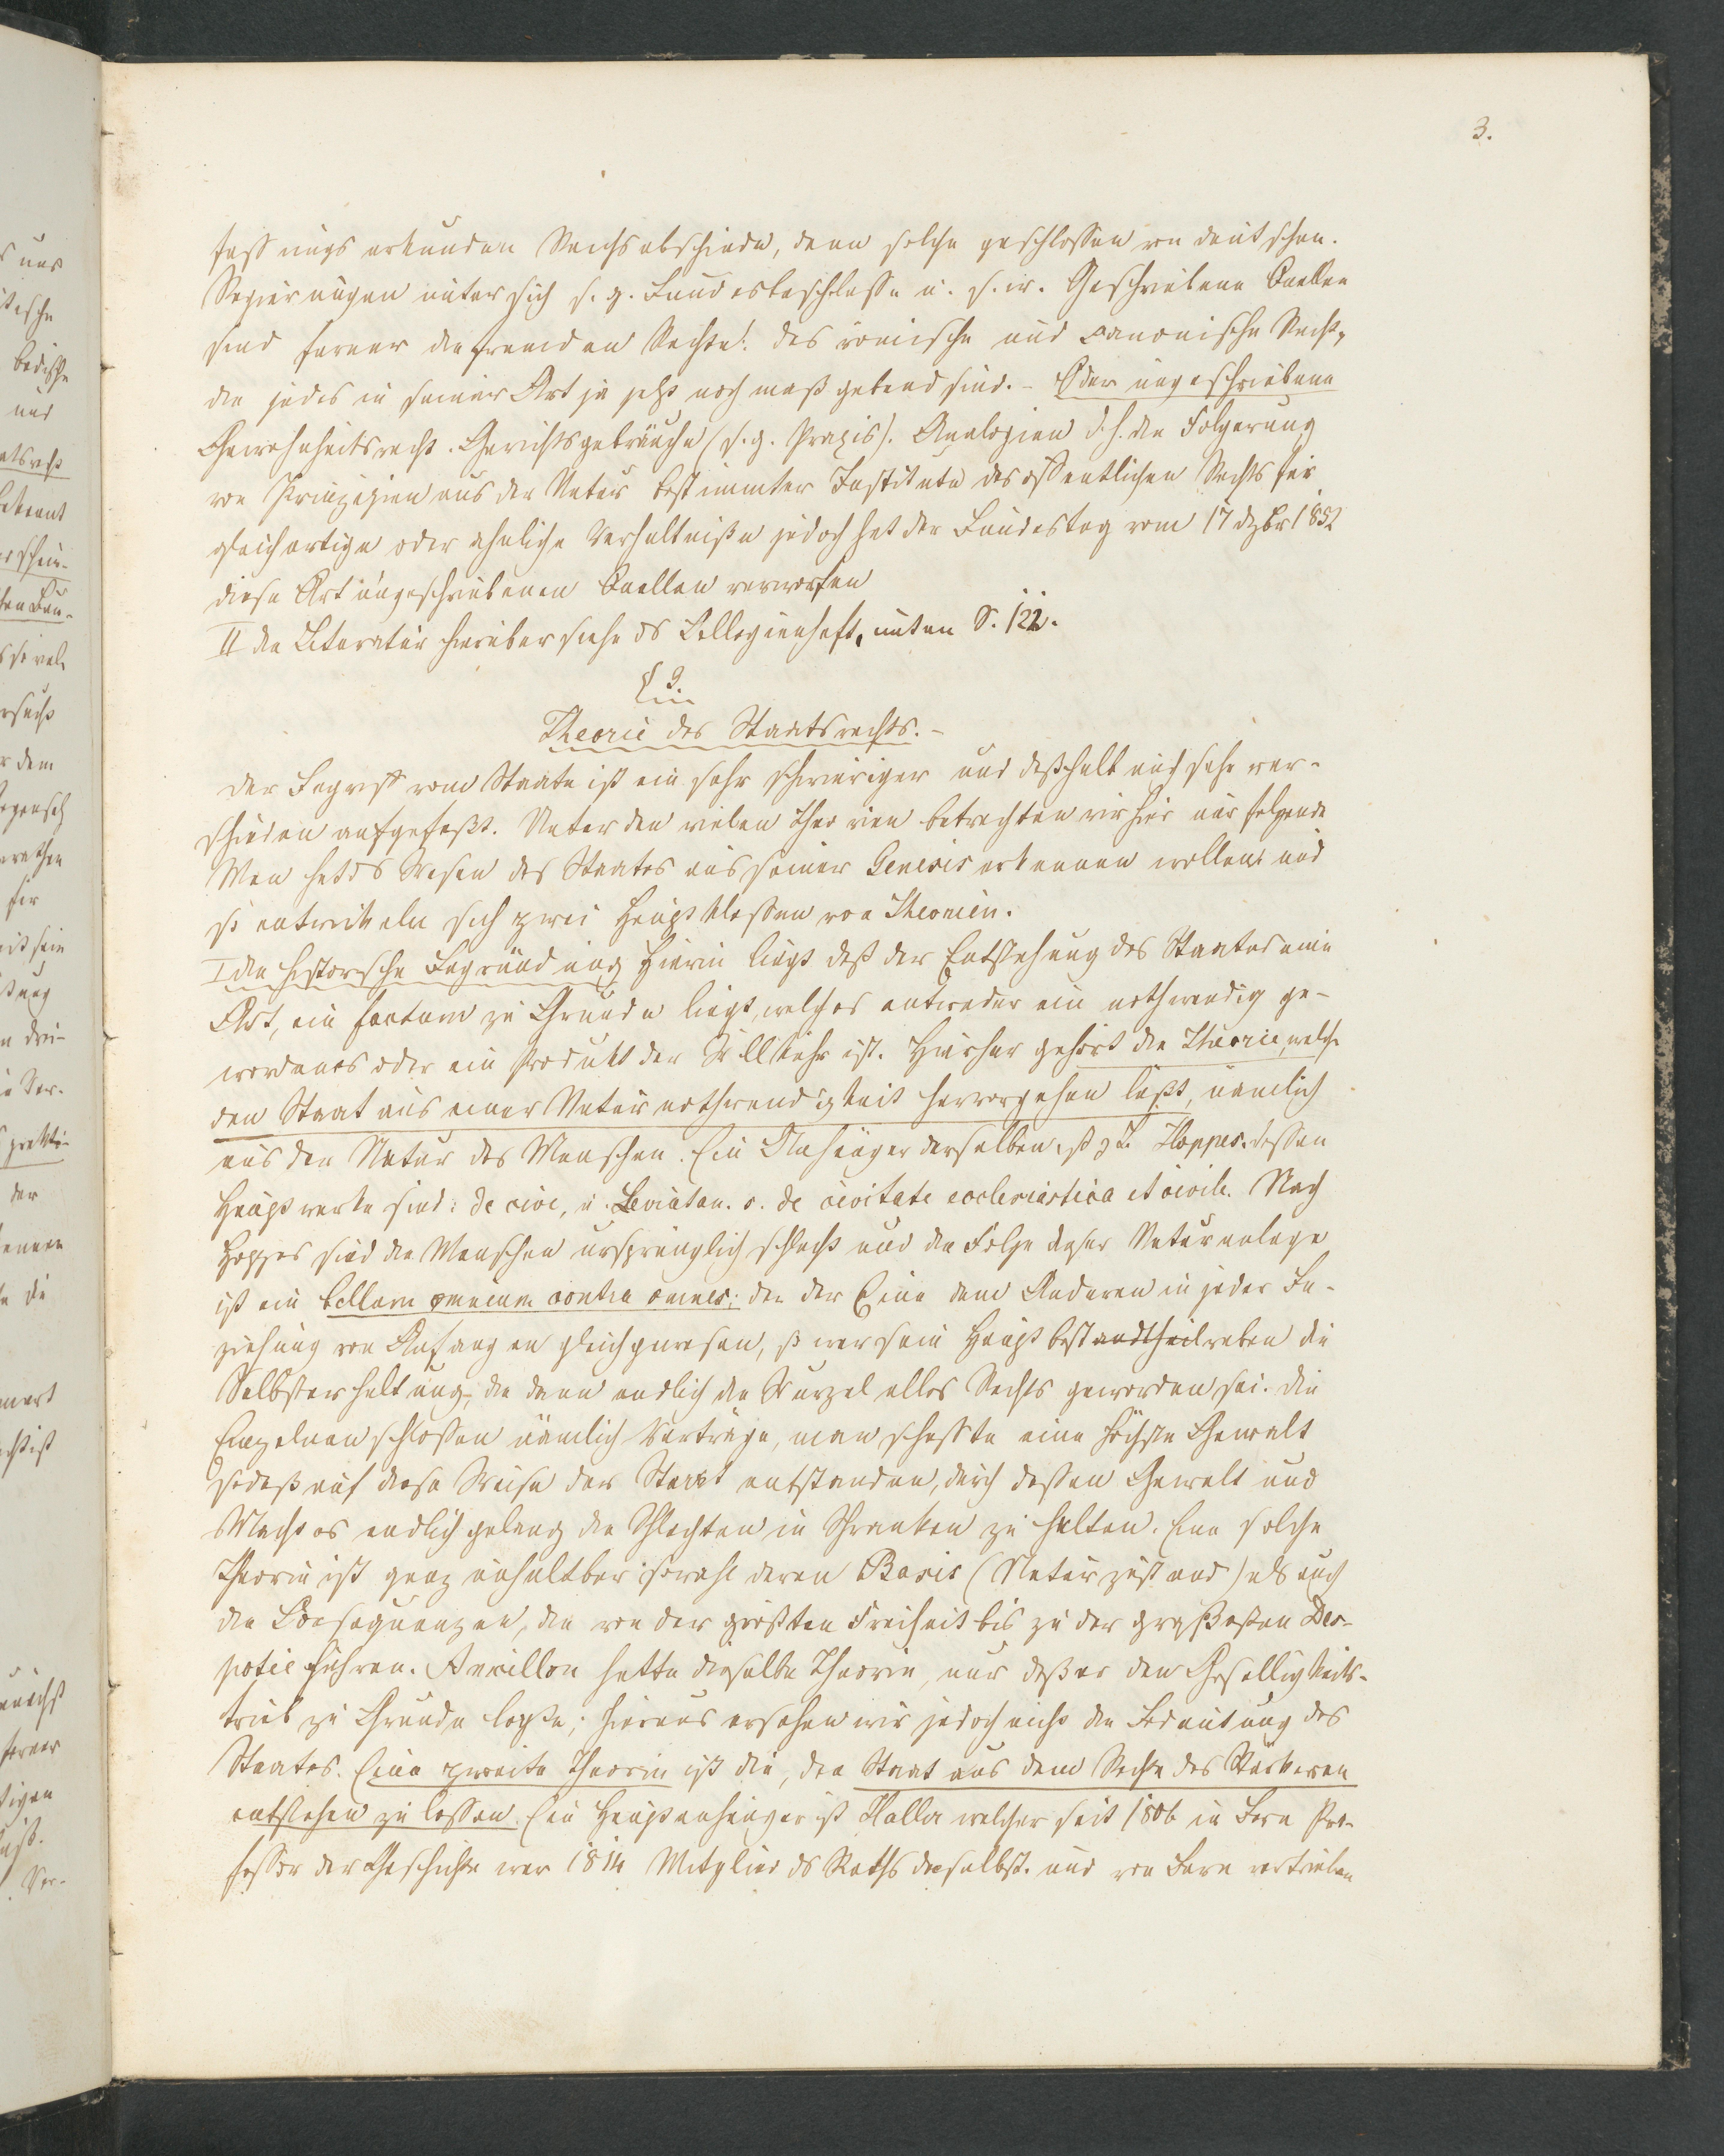 3.
fassungs urkunden Reichsabschiede, denn solche geschlossen von deutschen.
Regierungen unter sich s. g. Bundesbeschlusse u. s. w. Geschriebene Quellen
sind ferner die fremden Rechte: das römische und canonische Recht,
die jedes in seiner Art ja jetzt noch maßgebend sind. - Oder ungeschriebene
Gewohnheitsrecht. Gerichtsgebräuche (s. g. Praxis). Analogien d. h. die Folgerung
von Prinzipien aus der Natur bestimmter Institute des öffentlichen Rechts für
gleichartige oder ahnliche Verhaltniße jedoch hat der Bundestag vom 17 dzbr 1852
diese Art ungeschriebenen Quellen verworfen
II die Literatur hierüber siehe ds Collegienheft, unten S. 122.
§ 3.
Theorie des Staatsrechts. -
der Begriff vom Staate ist ein sehr schwieriger und deßhalb auch sehr ver-
schieden aufgefaßt. Unter den vielen Theorien betrachten wir hier nur folgende
Man hat ds Wesen des Staates aus seiner Genesis erkennen wollen und
so entwickeln sich zwei Hauptklassen von Theorien.
I die historische Begründung Hierin liegt daß der Entstehung des Staates eine
Art, ein factum zu Grunde liegt, welches entweder ein nothwendig ge-
wordenes oder ein Produkt der Willkühr ist. Hierher gehört die Theorie, welche
den Staat aus einer Naturnothwendigkeit hervorgehen läßt, nämlich
aus der Natur des Menschen. Ein Anhänger derselben ist z. B. Hoppes. dessen
Hauptwerke sind: de cive, u. Leviatan. s. de civitate ecclesiastica et civile. Nach
Hoppes sind die Menschen ursprünglich schlecht und die Folge dieser Naturanlage
ist ein bellum omnium contra omnes; da der Eine dem Anderen in jeder Be-
ziehung von Anfang an gleich gewesen, so war sein Hauptbestandtheil neben die
Selbsterhaltung, die dann endlich die Wurzel alles Rechts geworden sei. die
Einzelnen schlossen nämlich Verträge, man schaffte eine höchste Gewalt
sodaß auf diese Weise der Staat entstanden, durch dessen Gewalt und
Macht es endlich gelang die Schlechten in Schranken zu halten. Eine solche
Theorie ist ganz unhaltbar sowohl deren Basis (Naturzustand) als auch
die Consequenzen, die von der größten Freiheit bis zu der größesten Des-
potie führen. Ancillon hatte dieselbe Theorie, nur daß er den Geselligkeits-
trieb zu Grunde legte; hieraus ersehen wir jedoch nicht die Bedeutung des
Staates. Eine zweite Theorie ist die, den Staat aus dem Rechte des Stärkeren
entstehen zu lassen. Ein Hauptanhänger ist Haller welcher seit 1806 in Bern Pro-
fessor der Geschichte war 1814 Mitglied ds Raths daselbst. und von Bern vertrieben